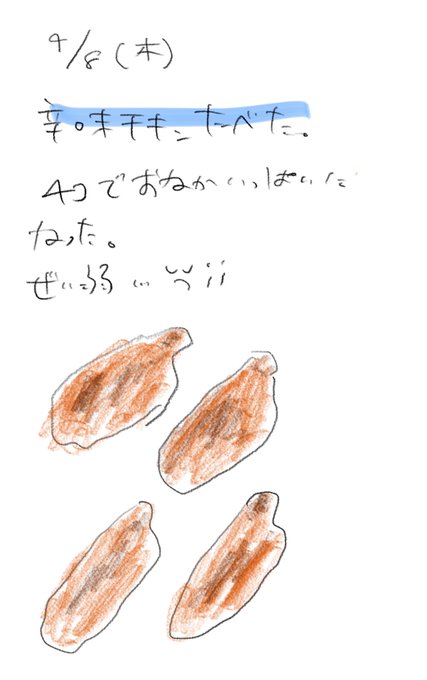 9/8（木）
辛味チキンたべた。
4コでおなかいっぱいに
なった。
ぜい弱…